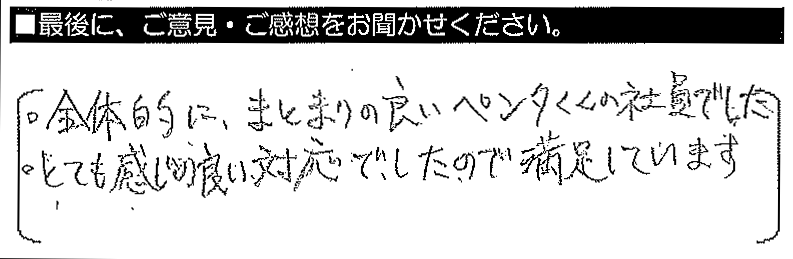 ■最後に、ご意見・ご感想をお聞かせください。
○全体的に、まとまりの良いペンタくんの社員でした
○とても感じの良い対応でしたので満足しています